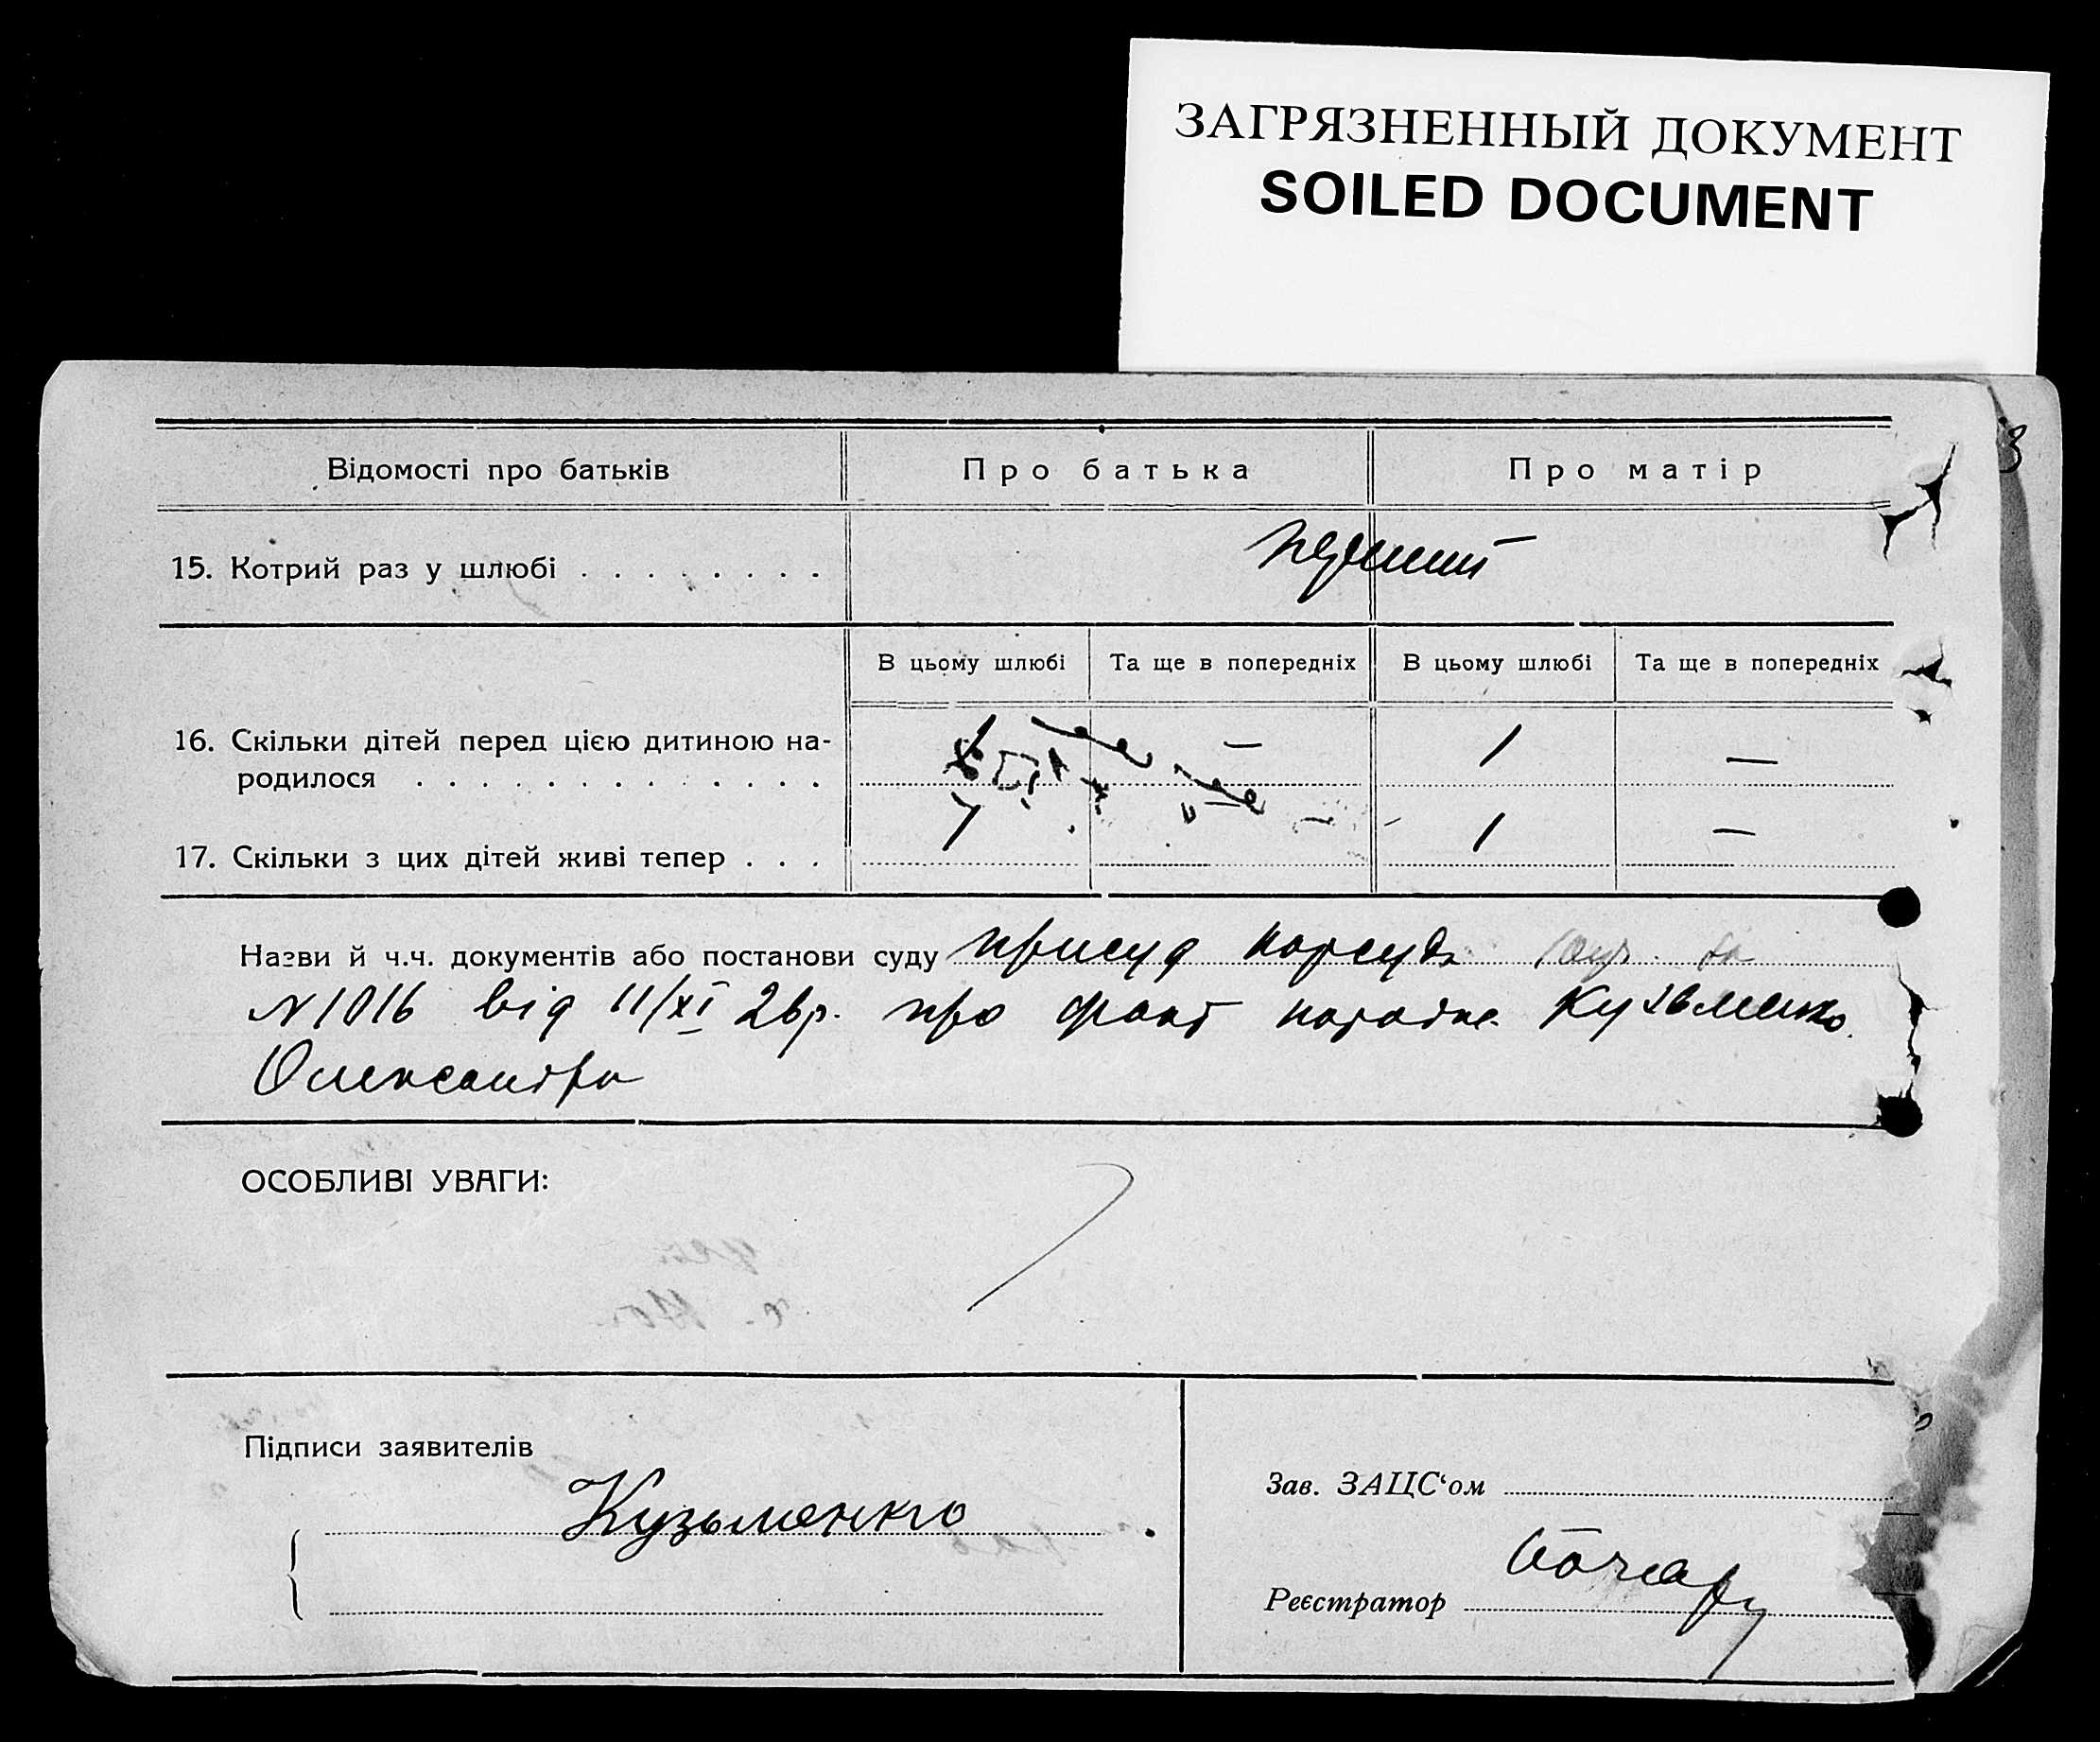 ЗАГРЯЗНЕННЫЙ ДОКУМЕНТ
SOILED DOCUMENT
3
Відомості про батьків Про батька Про матір
15. Котрий раз у шлюбі . . . . . . . . перший
В цьому шлюбі Та ще в попередніх В цьому шлюбі Та ще в попередніх
16. Скільки дітей перед цією дитиною на-
родилося . . . . . . . . . . . . . — 1 —
17. Скільки з цих дітей живі тепер . . . 1 1 —
Назви й ч.ч. документів або постанови суду присуд нарсуда
№ 1016 від 11/XI 26р. про факт Кузьменко
Олександра
ОСОБЛИВІ УВАГИ:
Підписи заявителів
Кузьменко
Зав. ЗАЦС‘ом
Реєстратор